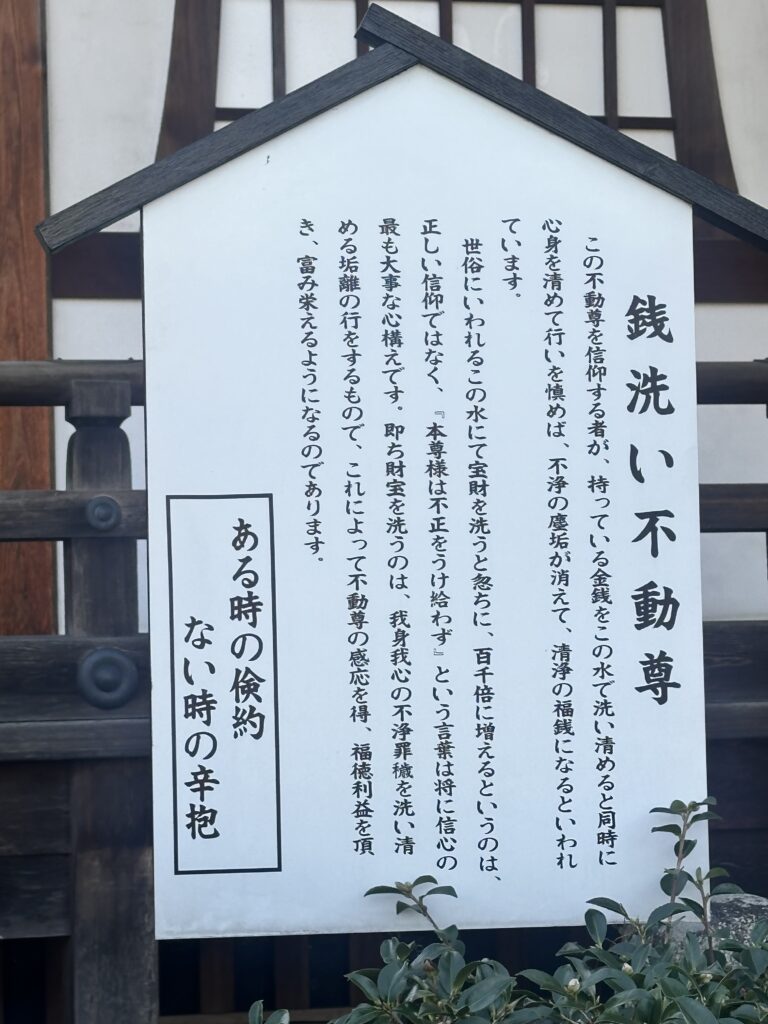 銭洗い不動尊
この不動尊を信仰する者が、持っている金銭をこの水で洗い清めると同時に
心身を清めて行いを慎めば、不浄の塵垢が消えて、清浄の福銭になるといわれ
ています。
世俗にいわれるこの水にて宝財を洗うと忽ちに、百千倍に増えるというのは、
正しい信仰ではなく、『本尊様は不正をうけ給わず』という言葉は将に信心の
最も大事な心構えです。即ち財宝を洗うのは、我身我心の不浄罪穢を洗い清
める垢離の行をするもので、これによって不動尊の感応を得、福徳利益を頂
き、富み栄えるようになるのであります。
ある時の倹約
ない時の辛抱